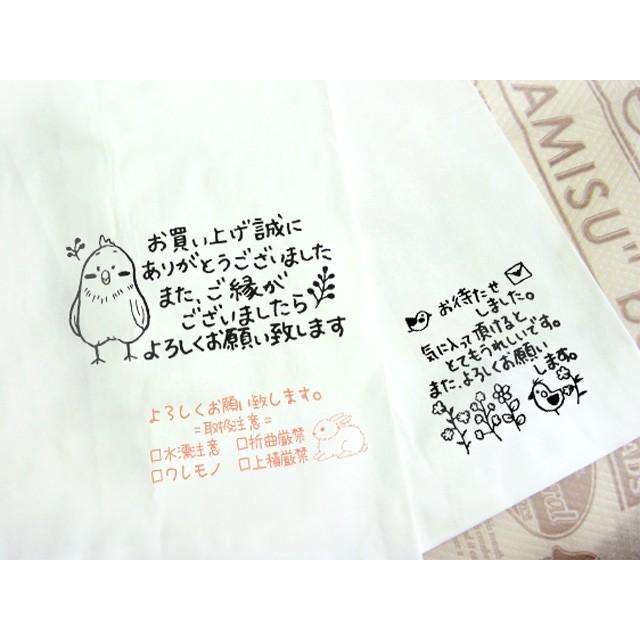 お買い上げ誠に
ありがとうございました
また、ご縁が
ございましたら
よろしくお願い致します
よろしくお願い致します。
=取扱注意=
□水濡注意 □折曲厳禁
□ワレモノ □上積厳禁
お待たせ
しました。
気に入って頂けると、
とてもうれしいです。
また、よろしくお願い
します。
AMISU"